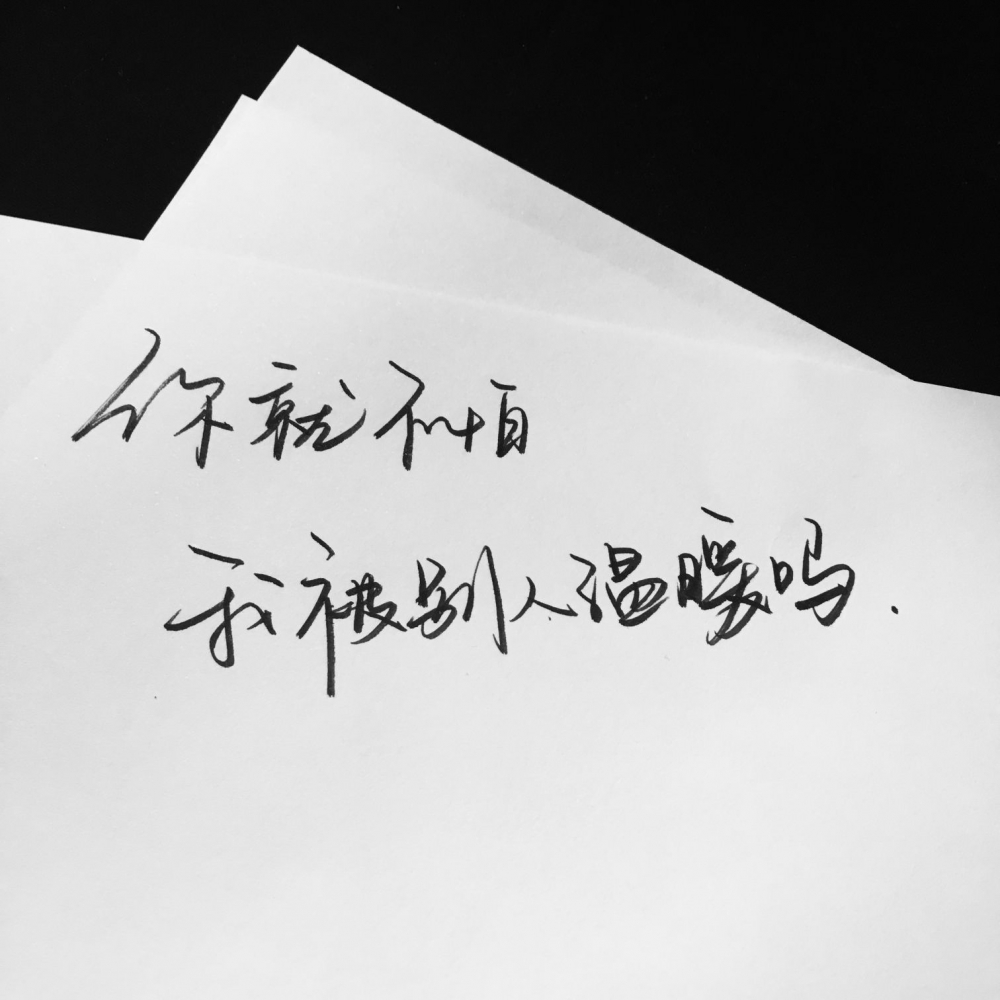 你就不怕
我被别人温暖吗.